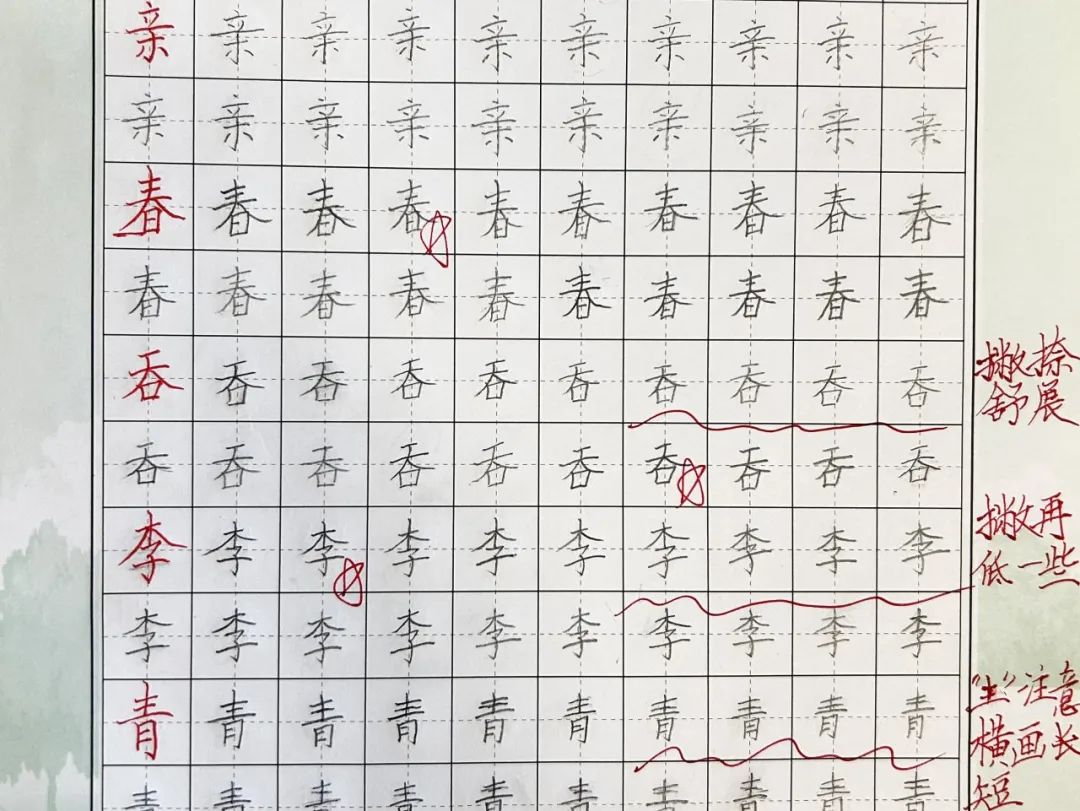 亲亲亲亲亲亲亲亲亲亲
亲亲亲亲亲亲亲亲亲亲
春春春春春春春春春春
春春春春春春春春春春
吞吞吞吞吞吞吞吞吞吞
吞吞吞吞吞吞吞吞吞吞
李李李李李李李李李李
李李李李李李李李李李
青青青青青青青青青青
青青青青青青青青青青
撇捺
舒展
撇再
低一些
"龶"注意
横画长
短